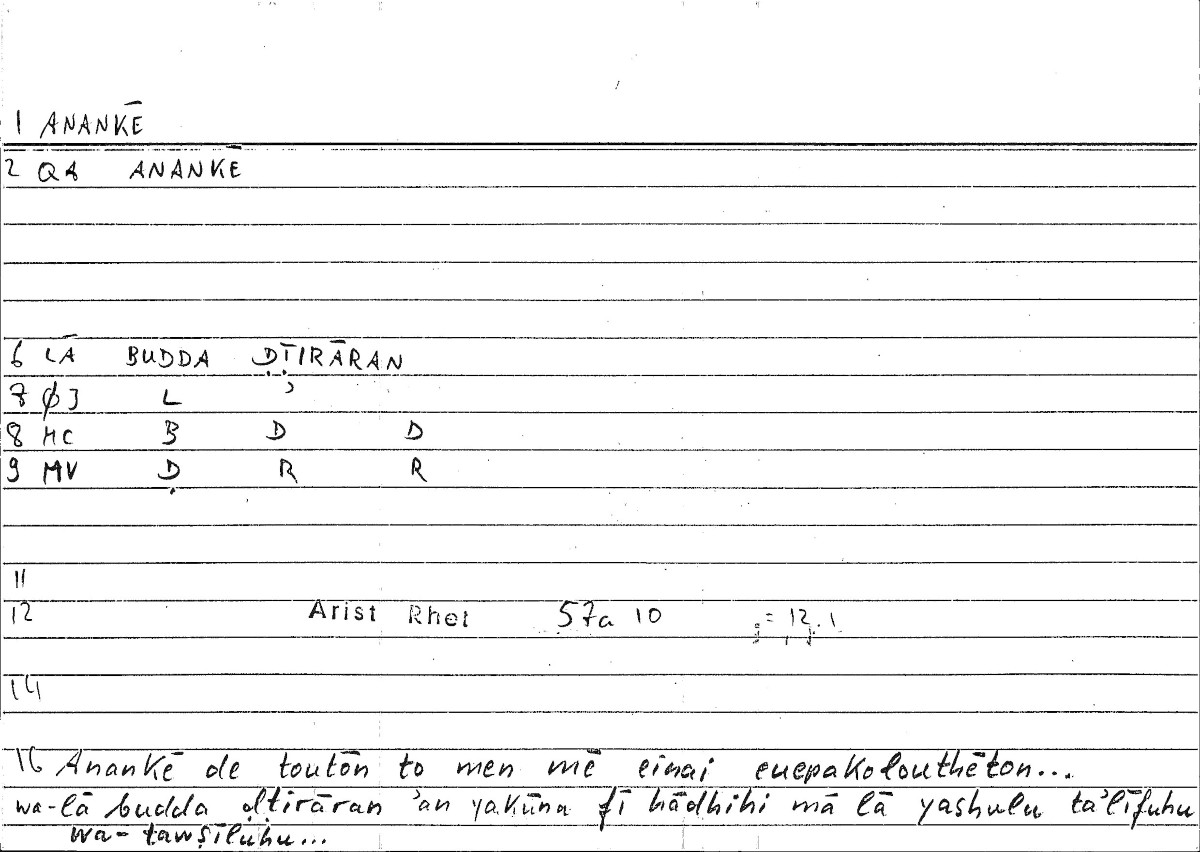 1 ANANKĒ
2 QA ANANKĒ
6 LĀ BUDDA ḌṬIRĀRAN
7 ØJ L ʾ
8 MC B D D
9 MV Ḍ R R
11
12 Arist Rhet 57a 10 = 12.1
14
16 Anankē de toutōn to men mē einai euepakolouthēton...
wa-lā budda ḍṭirāran ʾan yakūna fī hādhihi mā lā yashulu taʾlīfuhu
wa-tawṣīluhu...